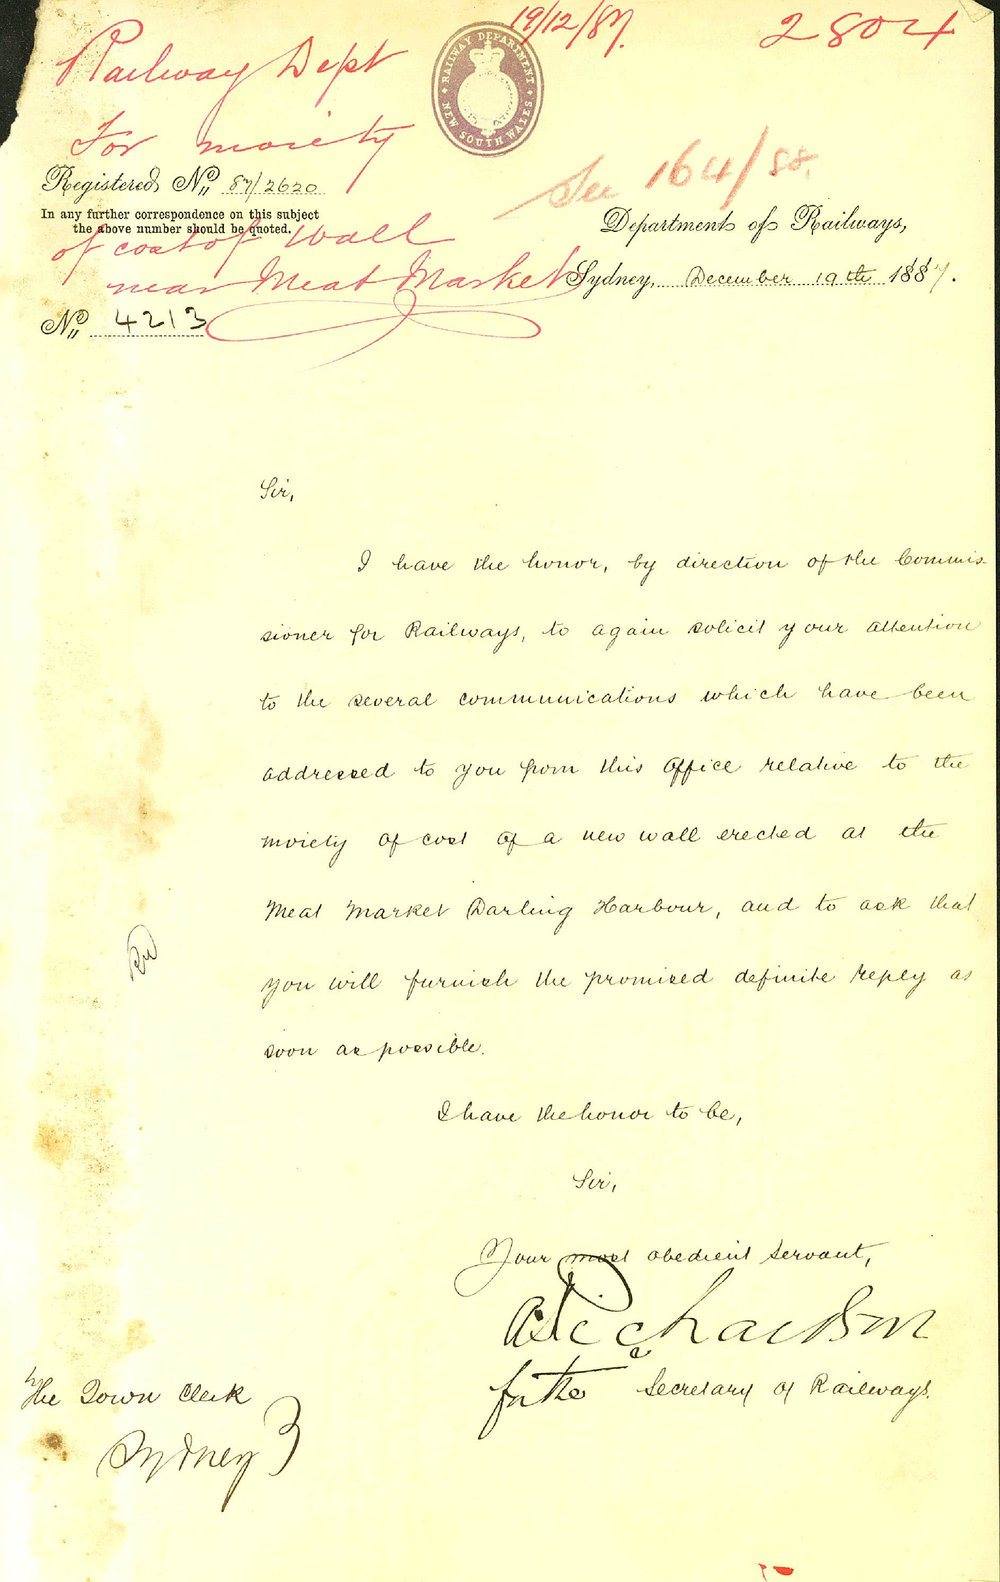 19/12/87.
2804
Railway Dept
For moiety
of cost of wall
near Meat Market
RAILWAY DEPARTMENT
NEW SOUTH WALES
See 164/88.
Registered No. 87/2620
In any further correspondence on this subject
the above number should be quoted.
Department of Railways,
Sydney, December 19th 1887.
No. 4213
Sir,
I have the honor, by direction of the Commis-
sioner for Railways, to again solicit your attention
to the several communications which have been
addressed to you from this Office relative to the
moiety of cost of a new wall erected at the
Meat Market Darling Harbour, and to ask that
you will furnish the promised definite reply as
soon as possible.
I have the honor to be,
Sir,
Your most obedient servant,
Richardson
for the Secretary of Railways.
The Town Clerk
Sydney